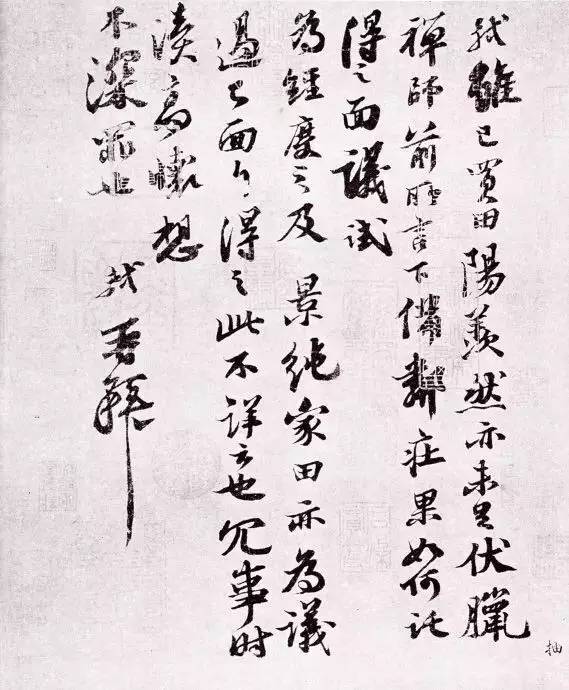 軾雖已買田陽羨然亦未足伏臘
禪師前所言下備鄰莊果如何託
得之面議試
為經度之及 景純家田亦為議
過已面白得之此不詳云也冗事時
瀆高懷想
不深罪也
軾再拜
抽